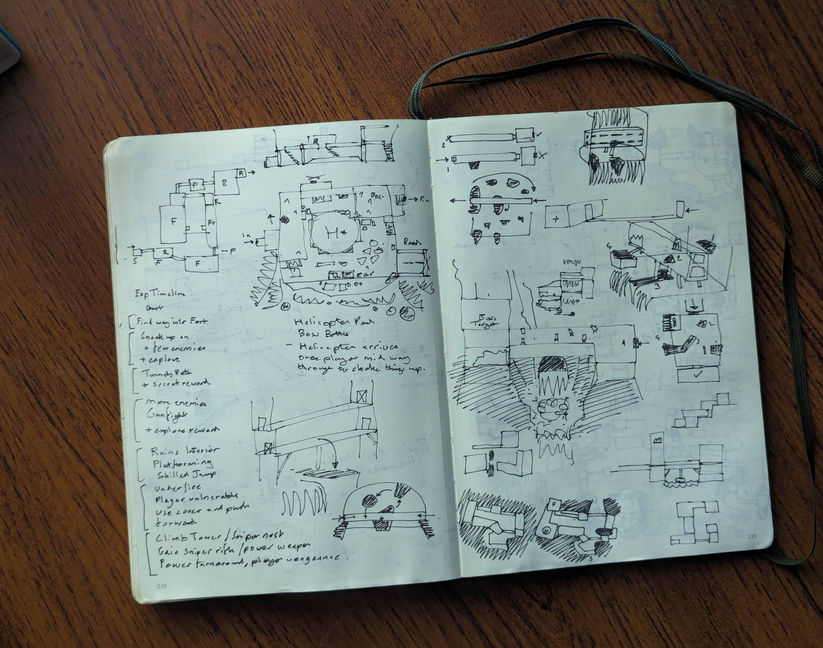 R
R
B
P
F
F
S
R
F
F
P
in
H
Road
Exp Timeline
Start
Find way into Fort
Sneak up on
a few enemies
+ explore
Tunnels Path
+ secret reward
more enemies
Gunfight
+ explore reward
Ruins Interior
Platforming
Skilled Jump
Under fire
Player vulnerable
use cover and push
forward
Climb Tower / Sniper nest
Gain sniper rifle / power weapon
Power turnaround, player vengeance.
Helicopter Pad
Boss Battle
- Helicopter arrives
once player mid way
through to shake things up.
238
Boss
Target
2
1
X
4
2
239